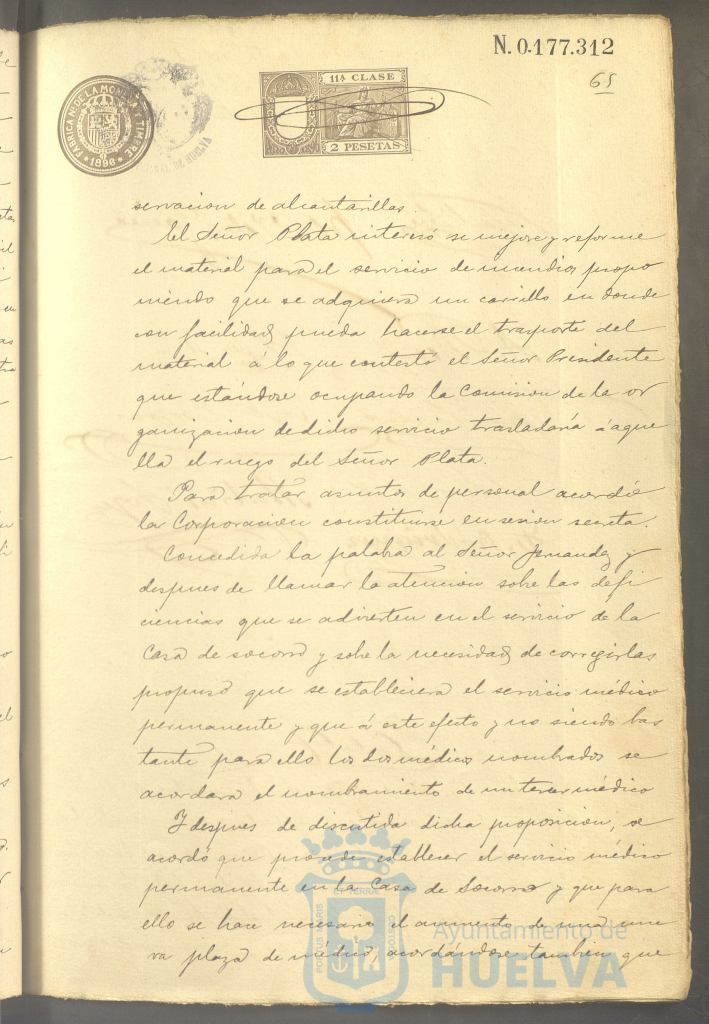 N. 0.177.312
65
11ª CLASE
2 PESETAS
FABRICA Nal DE LA MONEDA Y TIMBRE
1896
DE HUELVA
servacion de alcantarillas.
El Señor Plata interesó se mejore y reforme
el material para el servicio de incendios, propo
niendo que se adquiera un carrillo en donde
con facilidad pueda hacerse el trasporte del
material á lo que contestó el Señor Presidente
que estándose ocupando la Comision de la or
ganizacion de dicho servicio trasladaría á aque
lla el ruego del Señor Plata.
Para tratar asuntos de personal acordó
la Corporacion constituirse en sesion secreta.
Concedida la palabra al Señor Fernandez y
despues de llamar la atencion sobre las defi
ciencias que se advierten en el servicio de la
Casa de socorro y sobre la necesidad de corregirlas
propuso que se estableciera el servicio médico
permanente y que á este efecto y no siendo bas
tante para ello los dos médicos nombrados se
acordara el nombramiento de un tercer médico
Y despues de discutida dicha proposicion, se
acordó que procede establecer el servicio médico
permanente en la Casa de Socorro y que para
ello se hace necesario el aumento de una nue
va plaza de médico, acordándose tambien que
PORTUS MARIS
ET TERRÆ
CUSTODIA
Ayuntamiento de
HUELVA